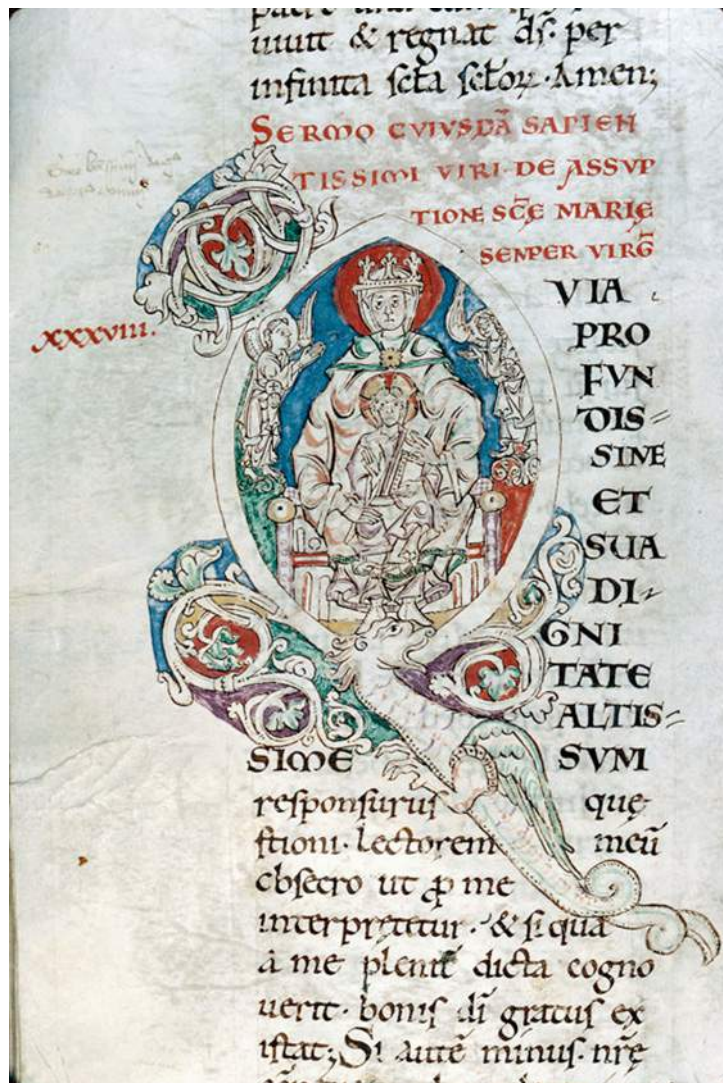 uiuit & regnat ds. per
infinita scla sclorꝝ. Amen;
SERMO CVIVSDĀ SAPIEN
TISSIMI VIRI DE ASSVP
TIONE SCĒ MARIĘ
SEMPER VIRḠ
XXXVIII.
VIA
PRO
FVN
DIS=
SIME
ET
SUA
DI-
GNI
TATE
ALTIS=
SIME SVM
responsurus quę
stioni. lectorem meū
obsecro ut ꝓ me
interpretetur. & si qua
a me plene dicta cogno
uerit. bonis dī gratus ex
istat; Si autē minus. nrę